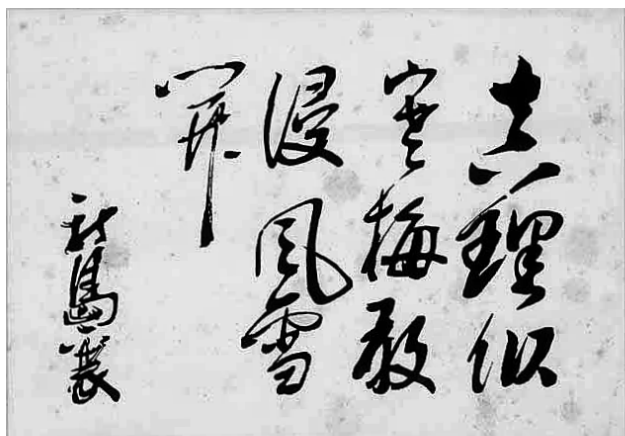 真理似
寒梅敢
侵風雪
開
新島襄